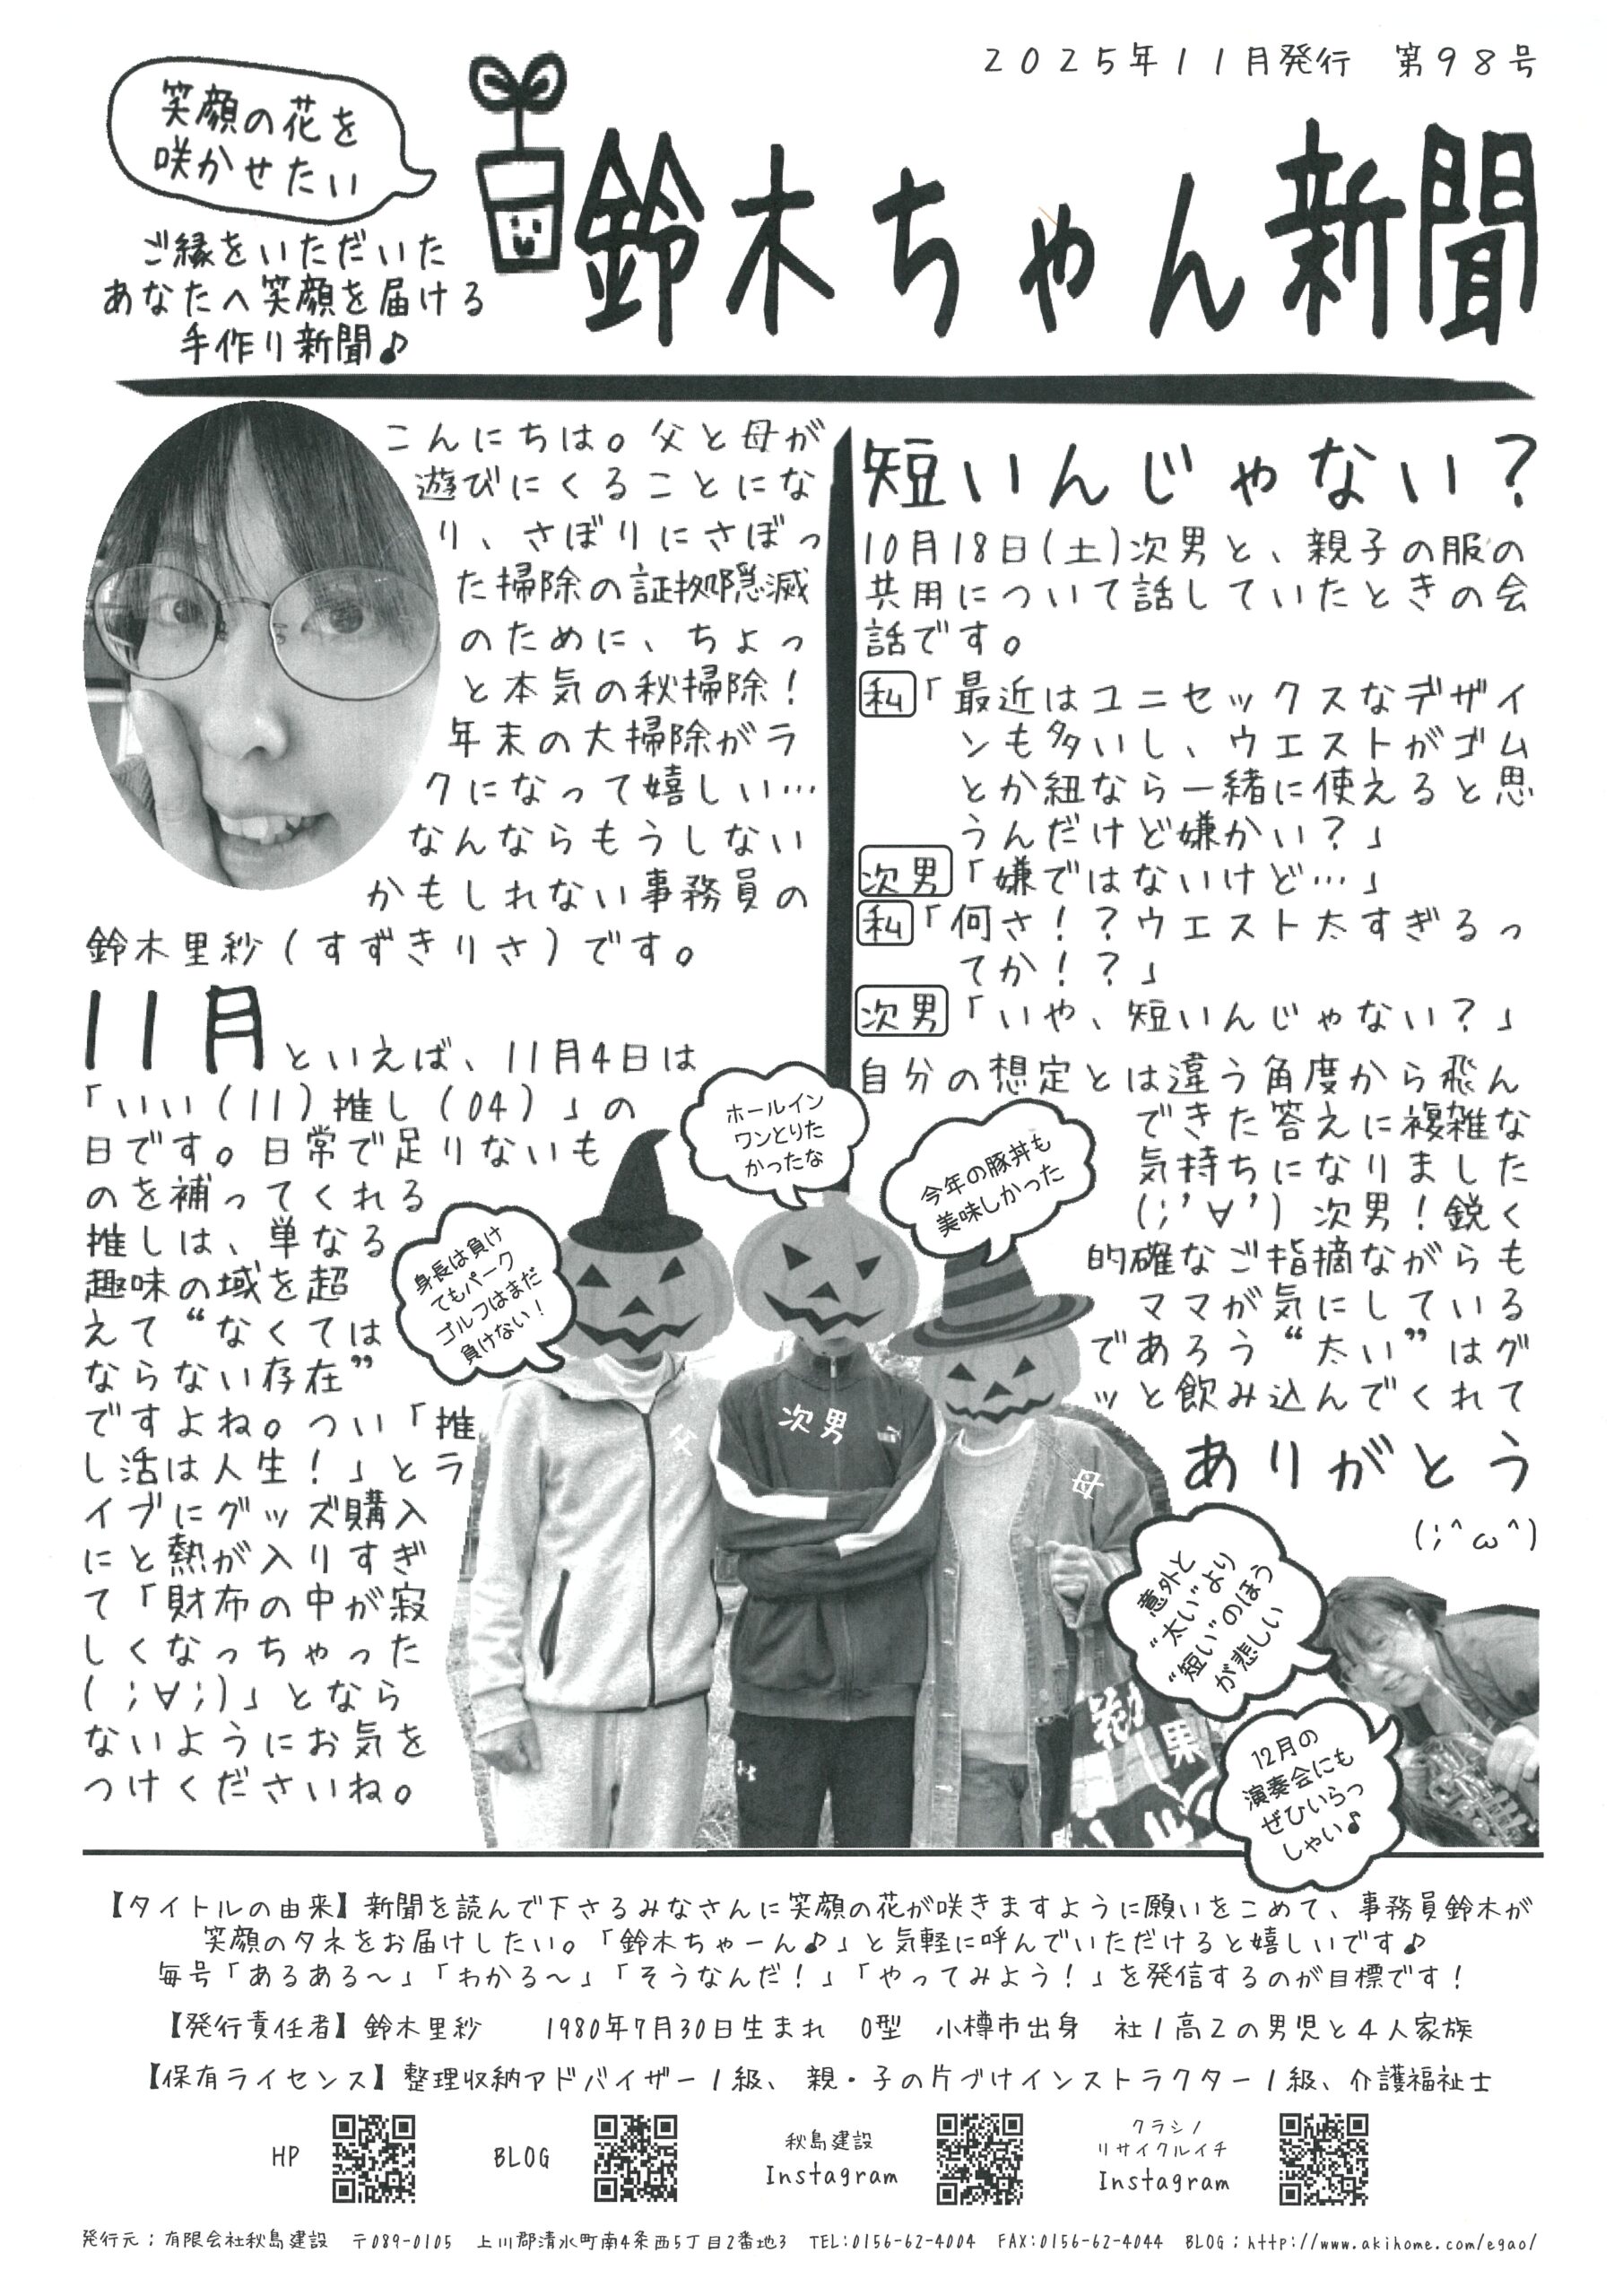 2025年11月発行　第98号
笑顔の花を
咲かせたい
鈴木ちゃん新聞
ご縁をいただいた
あなたへ笑顔を届ける
手作り新聞♪
こんにちは。父と母が
遊びにくることにな
り、さぼりにさぼっ
た掃除の証拠隠滅
のために、ちょっ
と本気の秋掃除！
年末の大掃除がラ
クになって嬉しい…
なんならもうしない
かもしれない事務員の
鈴木里紗(すずきりさ)です。
11月といえば、11月4日は
「いい(11)推し(04)」の
日です。日常で足りないも
のを補ってくれる
推しは、単なる
趣味の域を超
えて“なくては
ならない存在”
ですよね。つい「推
し活は人生！」とラ
イブにグッズ購入
にと熱が入りすぎ
て「財布の中が寂
しくなっちゃった
(;∀;)」となら
ないようにお気を
つけくださいね。
短いんじゃない？
10月18日(土)次男と、親子の服の
共用について話していたときの会
話です。
私「最近はユニセックスなデザイ
ンも多いし、ウエストがゴム
とか紐なら一緒に使えると思
うんだけど嫌かい？」
次男「嫌ではないけど…」
私「何さ！？ウエスト太すぎるっ
てか！？」
次男「いや、短いんじゃない？」
自分の想定とは違う角度から飛ん
できた答えに複雑な
気持ちになりました
(;'∀')次男！鋭く
的確なご指摘ながらも
ママが気にしている
であろう“太い”はグ
ッと飲み込んでくれて
ありがとう
(;^ω^)
身長は負け
てもパーク
ゴルフはまだ
負けない！
ホールイン
ワンとりた
かったな
今年の豚丼も
美味しかった
父
次男
母
意外と
“太い”より
“短い”のほう
が悲しい
12月の
演奏会にも
ぜひいらっ
しゃい♪
【タイトルの由来】新聞を読んで下さるみなさんに笑顔の花が咲きますように願いをこめて、事務員鈴木が
笑顔のタネをお届けしたい。「鈴木ちゃーん♪」と気軽に呼んでいただけると嬉しいです♪
毎号「あるある～」「わかる～」「そうなんだ！」「やってみよう！」を発信するのが目標です！
【発行責任者】鈴木里紗　1980年7月30日生まれ　O型　小樽市出身　社1高2の男児と4人家族
【保有ライセンス】整理収納アドバイザー1級、親・子の片づけインストラクター1級、介護福祉士
HP
BLOG
秋島建設
Instagram
クラシノ
リサイクルイチ
Instagram
発行元；有限会社秋島建設　〒089-0105　上川郡清水町南4条西5丁目2番地3　TEL:0156-62-4004　FAX:0156-62-4044　BLOG；http://www.akihome.com/egao/